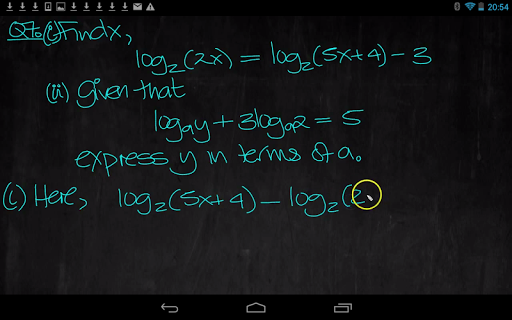 20:54
Q7. (i) Find x,
log₂(2x) = log₂(5x+4) - 3
(ii) Given that
logₐy + 3logₐ2 = 5
express y in terms of a.
(i) Here, log₂(5x+4) - log₂(2